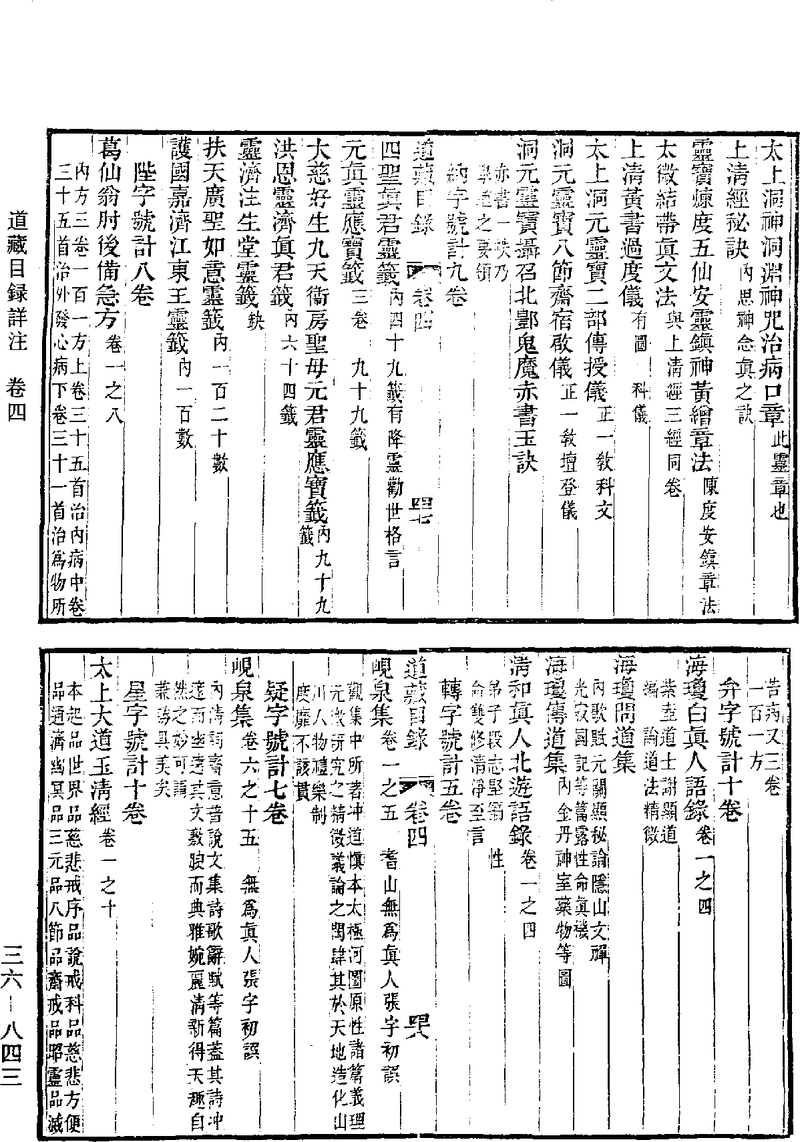 太上洞神洞淵神咒治病口章 此靈章也
上清經秘訣 內思神念眞之訣
靈寶煉度五仙安靈鎭神黃繒章法 陳度安鎭章法
太微結帶眞文法 與上清經三經同卷
上清黃書過度儀 有圖 科儀
太上洞元靈寶二部傳授儀 正一敎科文
洞元靈寶八節齋宿啟儀 正一敎壇登儀
洞元靈寶攝召北酆鬼魔赤書玉訣
赤書一軼乃
學道之要領
納字號計九卷
道藏目錄 卷四 四七
四聖眞君靈籤 內四十九籤有降靈勸世格言
元眞靈應寶籤 三卷 九十九籤
大慈好生九天衞房聖母元君靈應寶籤 內九十九
籤
洪恩靈濟眞君籤 內六十四籤
靈濟注生堂靈籤 缺
扶天廣聖如意靈籤 內一百二十數
護國嘉濟江東王靈籤 內一百數
陛字號計八卷
葛仙翁肘後備急方 卷一之八
內方三卷一百一方上卷三十五首治內病中卷
三十五首治外發心病下卷三十一首治爲物所
苦病又三卷
一百一方
弁字號計十卷
海瓊白眞人語錄 卷一之四
紫壺道士謝顯道
編 論道法精微
海瓊問道集
內歌賦元關顯秘論隱山文禪
光寂園記等篇露性命眞機
海瓊傳道集 內金丹神室藥物等圖
清和眞人北遊語錄 卷一之四
弟子段志堅編 性
命雙修清淨至言
轉字號計五卷
道藏目錄 卷四 四八
峴泉集 卷一之五 耆山無爲眞人張字初譔
觀集中所著冲道愼本太極河圖原性諸篇義理
元微硏究之精微議論之閎肆其於天地造化山
川人物禮樂制
度靡不該貫
疑字號計七卷
峴泉集 卷六之十五 無爲眞人張字初譔
內清詞齋意普說文集詩歌辭賦等篇蓋其詩冲
邃而幽遠其文敷腴而典雅婉麗清新得天趣自
然之妙可謂
兼勝具美矣
星字號計十卷
太上大道玉清經 卷一之十
本起品世界品慈悲戒序品說戒科品慈悲方便
品通濟幽冥品三元品八節品齋戒品昭靈品滅
道藏目録詳注 卷四
三六－八四三